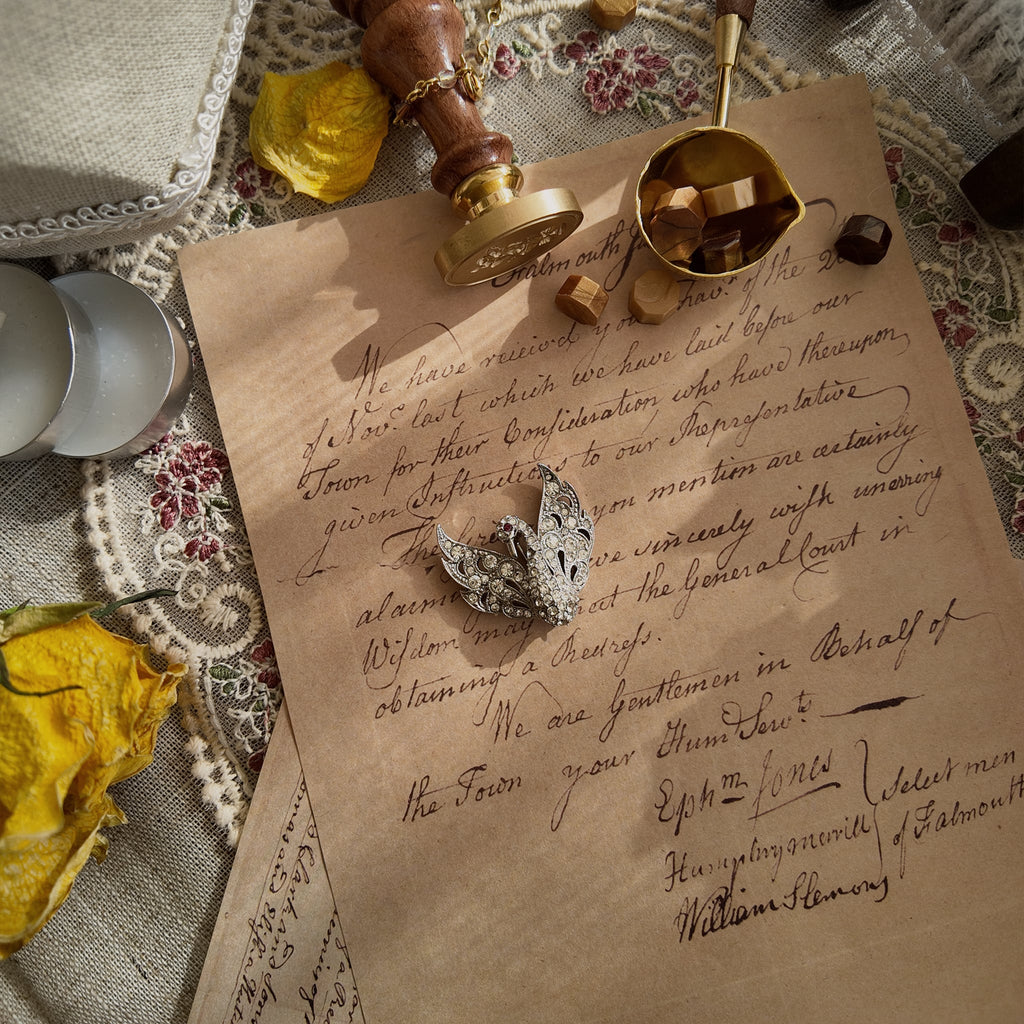 Falmouth
We have recievd your Fav.r of the 20
of Nov.r last which we have laid before our
Town for their Consideration who have thereupon
given Instructions to our Representative
The you mention are certainly
alarming we sincerely wish unerring
Wisdom may direct the General Court in
obtaining a Redress.
We are Gentlemen in Behalf of
the Town your Hum.l Serv.ts
Eph.m Jones
Humphry merrill
William Slemons
Select men
of Falmouth
Clark and
and